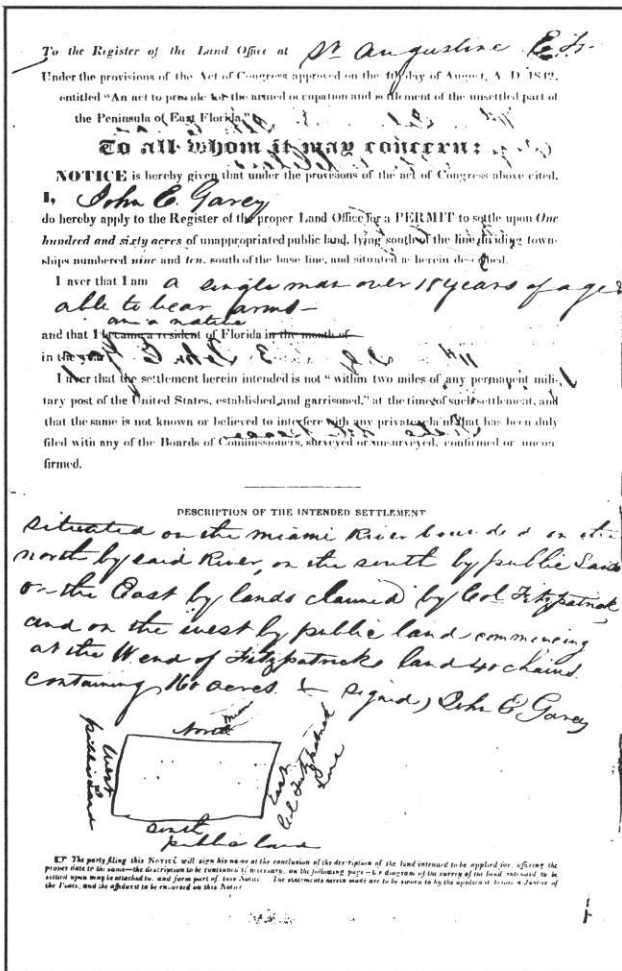 To the Register of the Land Office at St Augustine E. F.
Under the provisions of the Act of Congress approved on the 4th day of August, A. D. 1842,
entitled "An act to provide for the armed occupation and settlement of the unsettled part of
the Peninsula of East Florida,"
To all whom it may concern:
NOTICE is hereby given that under the provisions of the act of Congress above cited,
I, John E. Garey
do hereby apply to the Register of the proper Land Office for a PERMIT to settle upon One
hundred and sixty acres of unappropriated public land, lying south of the line dividing town-
ships numbered nine and ten, south of the base line, and situated as herein described.
I aver that I am a single man over 18 years of age &
able to bear arms—
am a native
and that I became a resident of Florida in the month of
in the year
I aver that the settlement herein intended is not "within two miles of any permanent mili-
tary post of the United States, established and garrisoned," at the time of such settlement, and
that the same is not known or believed to interfere with any private claim that has been duly
filed with any of the Boards of Commissioners, surveyed or unsurveyed, confirmed or uncon
firmed.
DESCRIPTION OF THE INTENDED SETTLEMENT
situated on the Miami River bounded on the
north by said River, on the south by public Land
on the East by lands claimed by Col. Fitzpatrick
and on the west by public land commencing
at the W end of Fitzpatricks land 40 chains
containing 160 acres & signed) John E Garey
North
West
public land
East
Col Fitzpatrick
Line
south
public land
The party filing this NOTICE will sign his name at the conclusion of the description of the land intended to be applied for, affixing the
proper date to the same—the description to be continued if necessary, on the following page—or diagram of the survey of the land intended to be
settled upon may be attached to, and form part of this Notice The statements herein made are to be sworn to by the applicant before a Justice of
the Peace, and the affidavit to be endorsed on this Notice